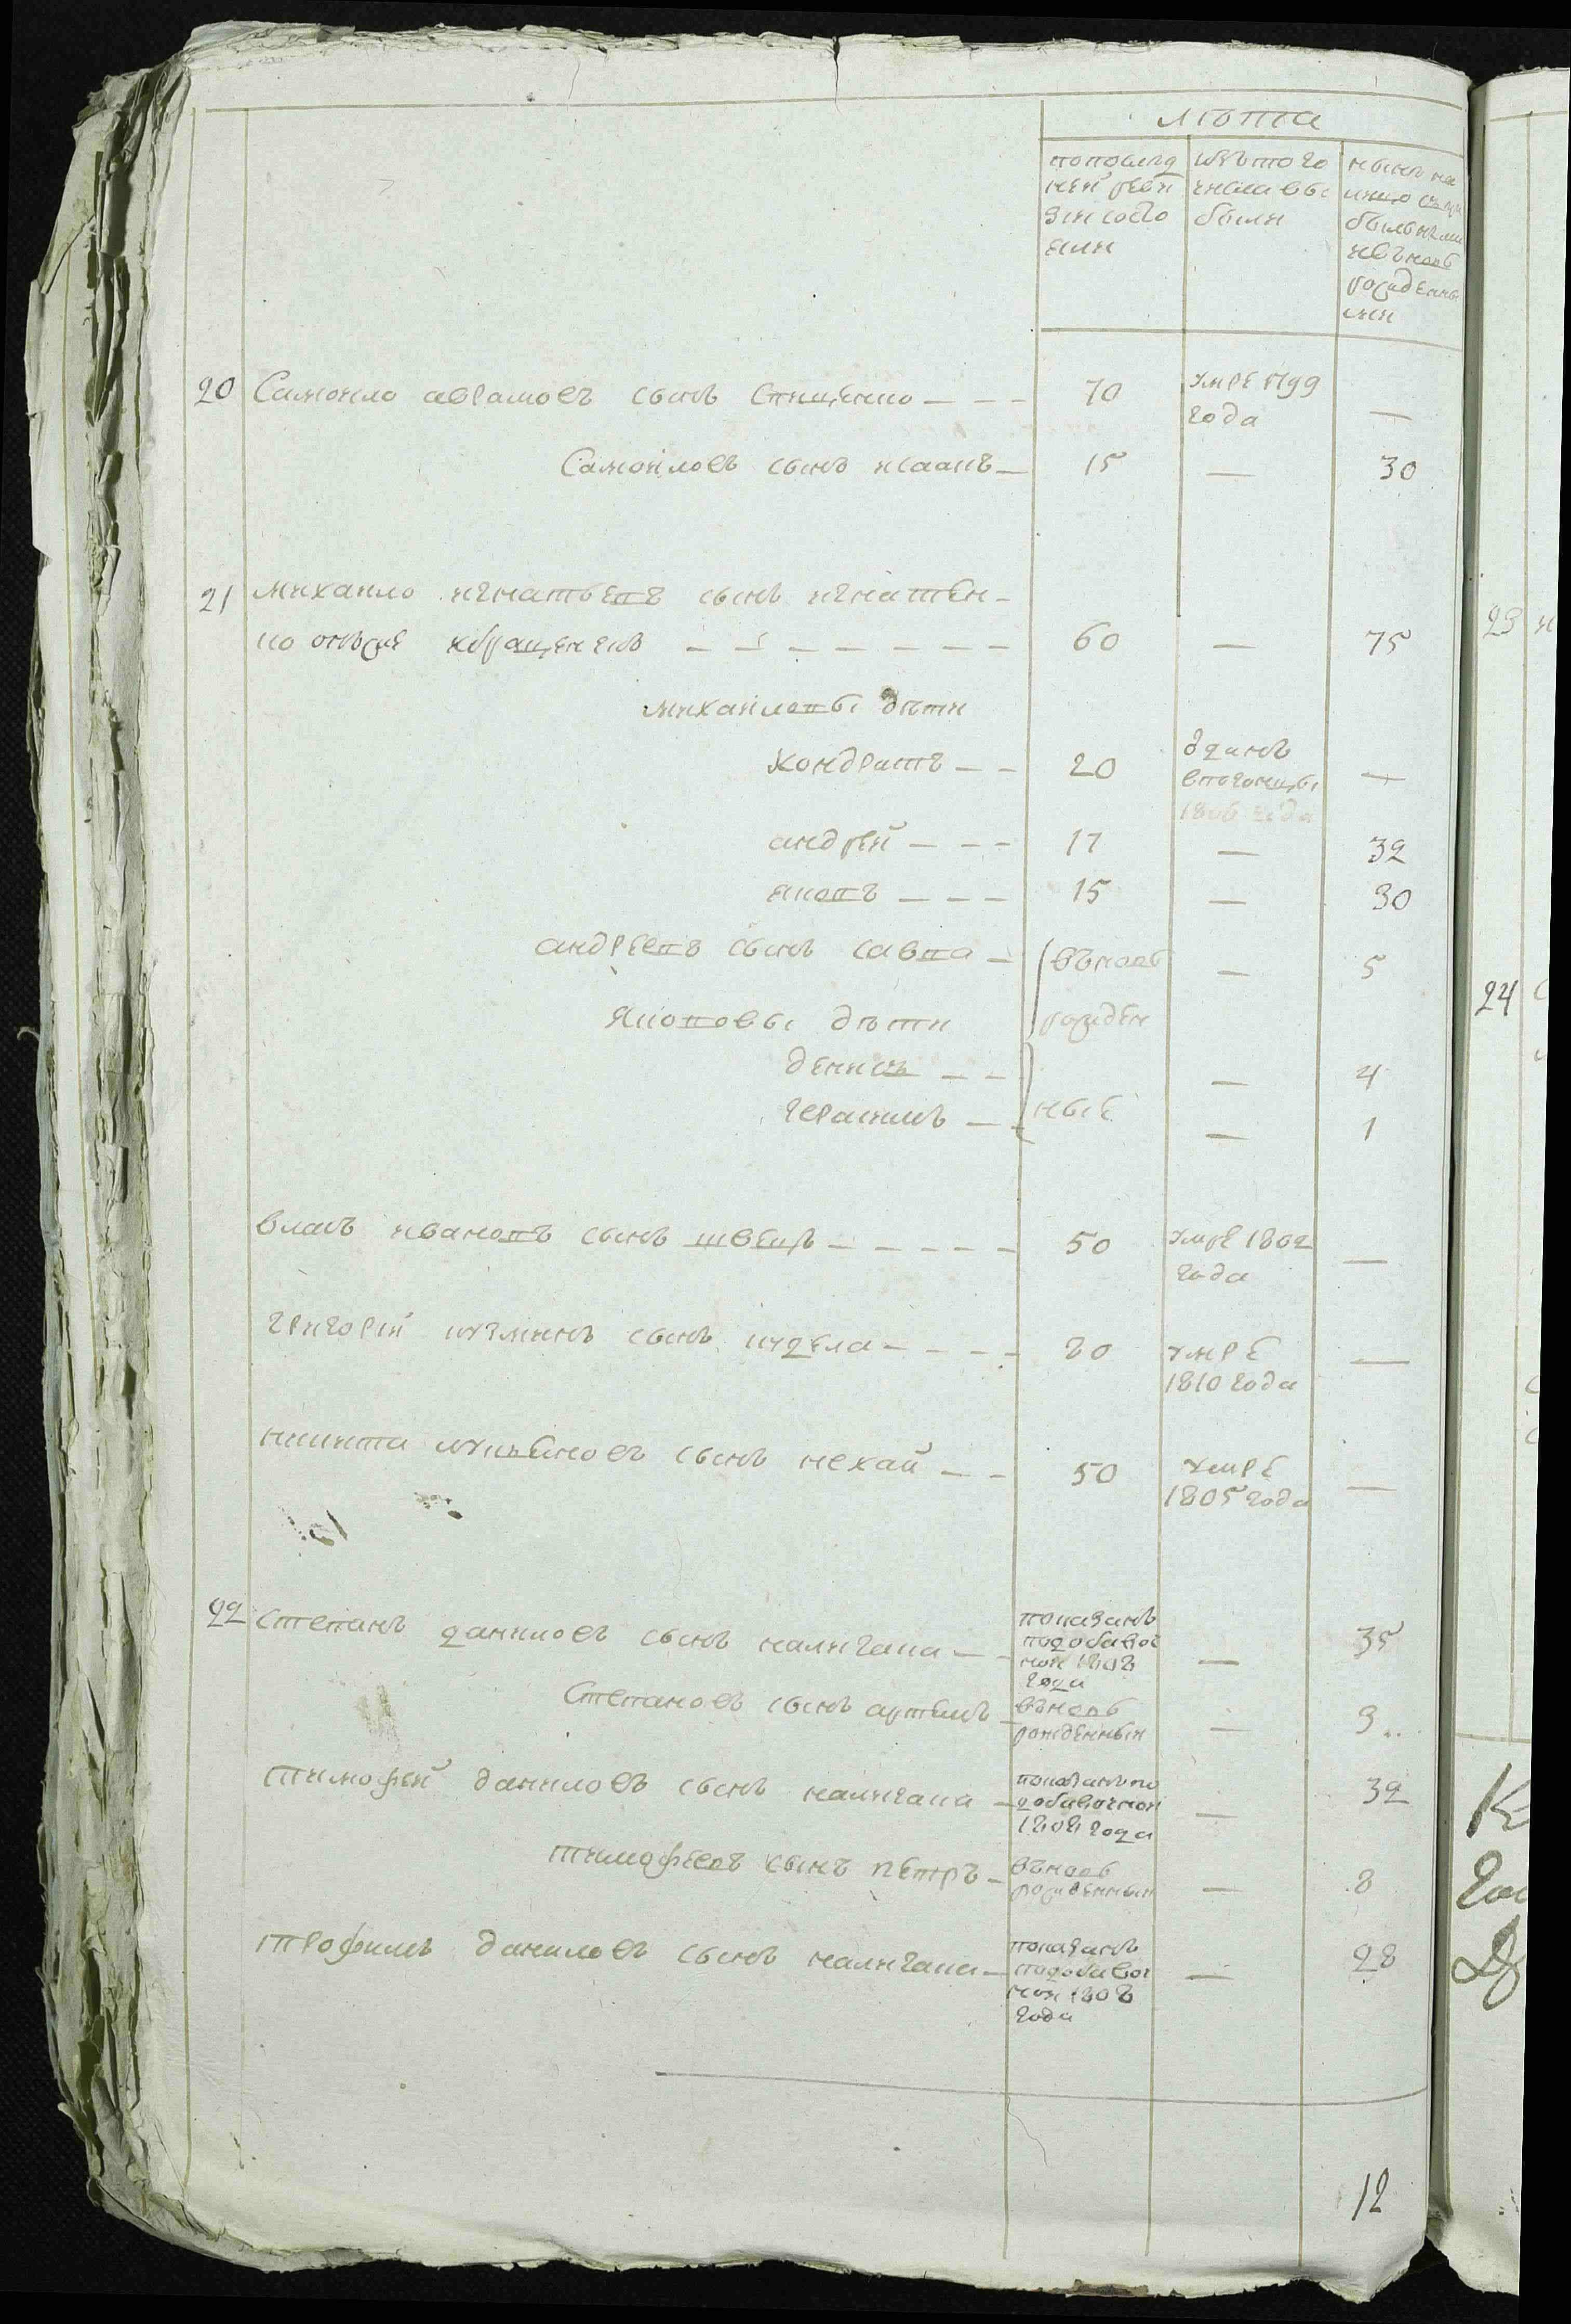 лѣта
по послѣд
ней реви
зіи состо
яли
изъ того
числа вы
были
нынѣ на
лицо съ при
былыми
и вновь
рожденны
ми
20 Самойло аврамовъ сынъ Стищенко — — — 70 умре 1799 года —
Самойловъ сынъ исаакъ — 15 — 30
21 михайло игнатьевъ сынъ игнатен-
ко онъже 60 — 75
михайловы дѣти
Кондратъ — — 20 зданъ
в погонщы
1806 года —
андрей — — — 17 — 32
яковъ — — — 15 — 30
андреевъ сынъ савва — вновь — 5
якововы дѣти рожден
денисъ — — — 4
герасимъ — ные — 1
власъ ивановъ сынъ швецъ — — — — — 50 умре 1802
года —
григорій кузминъ сынъ кудела — — — — 20 умре
1810 года —
никита лукьяновъ сынъ нехай — — 50 умре
1805 года —
22 степанъ даниловъ сынъ калигала — показанъ
по добавоч
ной 1808
года — 35
Степановъ сынъ артемъ — вновь
рожденный — 3
тимофей даниловъ сынъ калигала — показанъ по
добавочной
1808 года — 32
тимофеевъ сынъ петръ — вновь
рожденный — 8
трофимъ даниловъ сынъ калигала — показанъ
по добавоч
ной 1808
года — 28
12
23
24